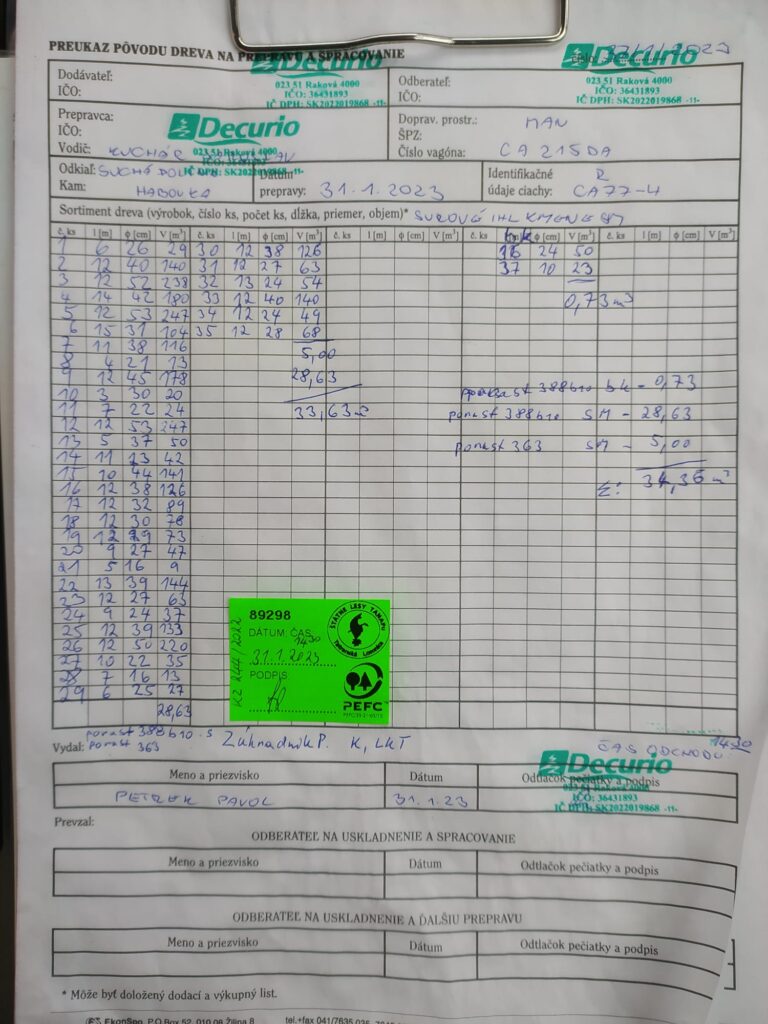 PREUKAZ PÔVODU DREVA NA PREPRAVU A SPRACOVANIE
Decurio
023 51 Raková 4000
IČO: 36431893
IČ DPH: SK2022019868 -11-
Decurio
023 51 Raková 4000
IČO: 36431893
IČ DPH: SK2022019868 -11-
Dodávateľ:
IČO:
Odberateľ:
IČO:
Prepravca:
IČO:
Decurio
Vodič: KUCHÁR
Doprav. prostr.: MAN
ŠPZ:
Číslo vagóna: CA 215DA
Odkiaľ: SUCHÁ
Kam: HABOVKA
Dátum
prepravy: 31.1.2023
Identifikačné R
údaje ciachy: CA77-4
Sortiment dreva (výrobok, číslo ks, počet ks, dĺžka, priemer, objem)* SUROVÉ IHL KMENE
č. ks l [m] ϕ [cm] V [m³] č. ks l [m] ϕ [cm] V [m³] č. ks l [m] ϕ [cm] V [m³] č. ks l [m] ϕ [cm] V [m³] č. ks l [m] ϕ [cm] V [m³]
1 6 26 29 30 12 38 126 24 50
2 12 40 140 31 12 27 63 37 10 23
3 12 52 238 32 13 24 54
4 14 42 180 33 12 40 140 0,73 m³
5 12 53 247 34 12 24 49
6 15 31 104 35 12 28 68
7 11 38 116 5,00
8 4 21 13
9 12 45 178 28,63
10 3 30 20 porast 388b10 bk - 0,73
11 7 22 24 33,63 porast 388b10 SM - 28,63
12 12 53 247
13 5 37 50 porast 363 SM - 5,00
14 11 23 42
15 10 44 141
16 12 38 126 Σ: 34,36 m³
17 12 32 89
18 12 30 78
19 12 29 73
20 9 27 47
21 5 16 9
22 13 39 144
23 12 27 63
24 9 24 37
25 12 39 133
26 12 50 220
27 10 22 35
28 7 16 13
29 6 25 27
28,63
89298
DÁTUM ČAS
1430
31.1.2023
PODPIS
ŠTÁTNE LESY TANAPU
Tatranská Lomnica
PEFC
porast 388b10
Vydal: porast 363
K, LKT
ČAS ODCHODU 1430
Decurio
IČO: 36431893
IČ DPH: SK2022019868 -11-
Meno a priezvisko Dátum Odtlačok pečiatky a podpis
PETREK PAVOL 31.1.23
Prevzal:
ODBERATEĽ NA USKLADNENIE A SPRACOVANIE
Meno a priezvisko Dátum Odtlačok pečiatky a podpis
ODBERATEĽ NA USKLADNENIE A ĎALŠIU PREPRAVU
Meno a priezvisko Dátum Odtlačok pečiatky a podpis
* Môže byť doložený dodací a výkupný list.
P.O.Box 52, 010 08 Žilina 8 tel.+fax 041/7635